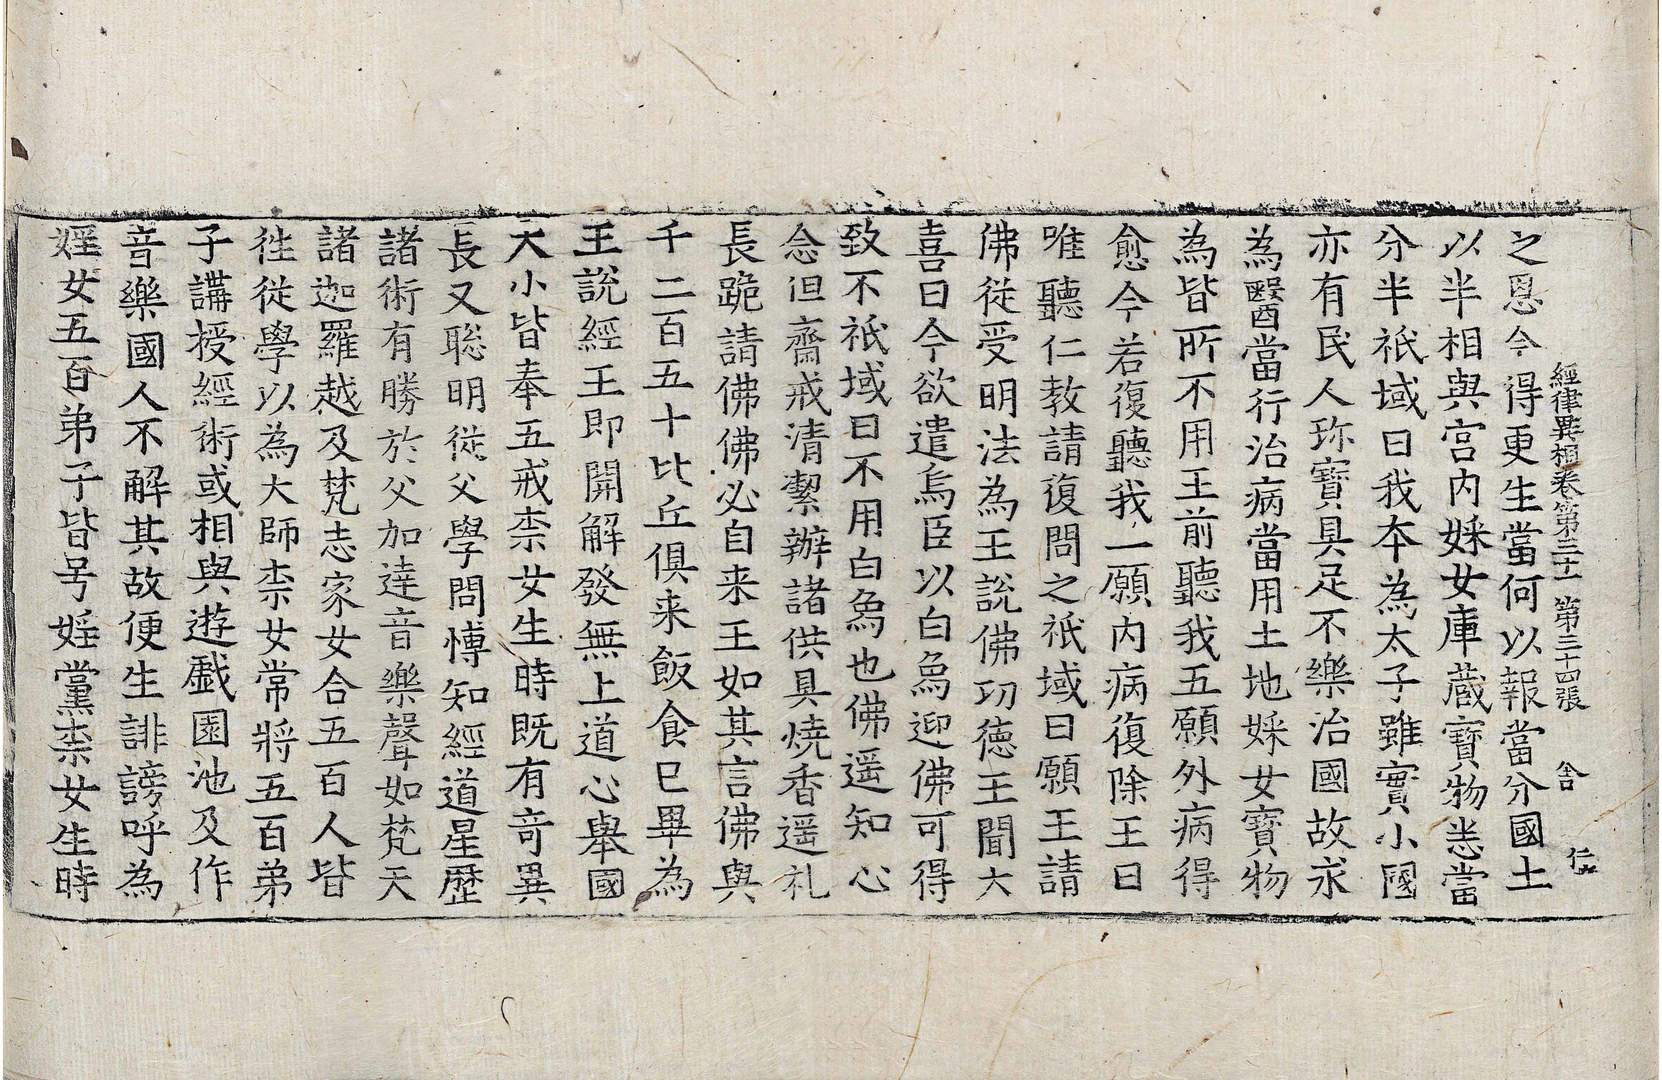 經律異相卷第三十一 第三十四張 舍 仁
之恩今得更生當何以報當分國土
以半相與宮内婇女庫藏寶物悉當
分半祇域曰我夲為太子雖實小國
亦有民人珎寶具足不樂治國故求
為醫當行治病當用土地婇女寶物
為皆所不用王前聽我五願外病得
愈今若復聽我一願内病復除王曰
唯聽仁教請復問之祇域曰願王請
佛從受明法為王説佛功德王聞大
喜曰今欲遣烏臣以白象迎佛可得
致不祇域曰不用白象也佛遥知心
念但齋戒清潔辦諸供具燒香遥礼
長跪請佛佛必自来王如其言佛與
千二百五十比丘俱来飯食已畢為
王說經王即開解發無上道心舉國
大小皆奉五戒柰女生時既有竒異
長又聡明從父學問愽知經道星歷
諸術有勝於父加達音樂聲如梵天
諸迦羅越及梵志家女合五百人皆
徃從學以為大師柰女常將五百弟
子講授經術或相與遊戯園池及作
音樂國人不解其故便生誹謗呼為
婬女五百弟子皆号婬黨柰女生時